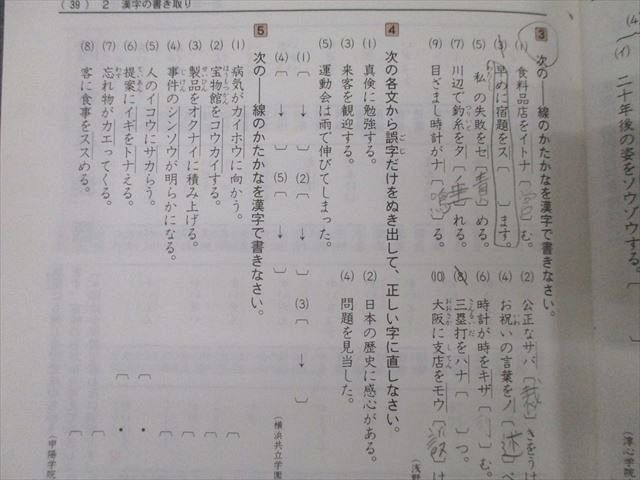 (39) 2 漢字の書き取り
二十年後の姿をソウゾウする。
3 次の――線のかたかなを漢字で書きなさい。
(1) 食料品店をイトナ〔営〕む。
(2) 公正なサバ〔裁〕きをうけ
(3) 早めに宿題をス〔 〕ます。
(4) お祝いの言葉をノ〔述〕べ
(5) 私の失敗をセ〔責〕める。
(6) 時計が時をキザ〔 〕む。
(7) 川辺で釣糸をタ〔垂〕れる。
(8) 三塁打をハナ〔 〕つ。
(9) 目ざまし時計がナ〔鳴〕る。
(10) 大阪に支店をモウ〔設〕け
(浅野
4 次の各文から誤字だけをぬき出して、正しい字に直しなさい。
(1) 真倹に勉強する。
(2) 日本の歴史に感心がある。
(3) 来客を観迎する。
(4) 問題を見当した。
(5) 運動会は雨で伸びてしまった。
(1)〔 ↓ 〕 (2)〔 ↓ 〕 (3)〔 ↓ 〕
(4)〔 ↓ 〕 (5)〔 ↓ 〕
(横浜共立学園
5 次の――線のかたかなを漢字で書きなさい。
(1) 病気がカイホウに向かう。
(2) 宝物館をコウカイする。
(3) 製品をオクナイに積み上げる。
(4) 事件のシンソウが明らかになる。
(5) 人のイコウにサカらう。
(6) 提案にイギをトナえる。
(7) 忘れ物がカエってくる。
(8) 客に食事をススめる。
(甲陽学院